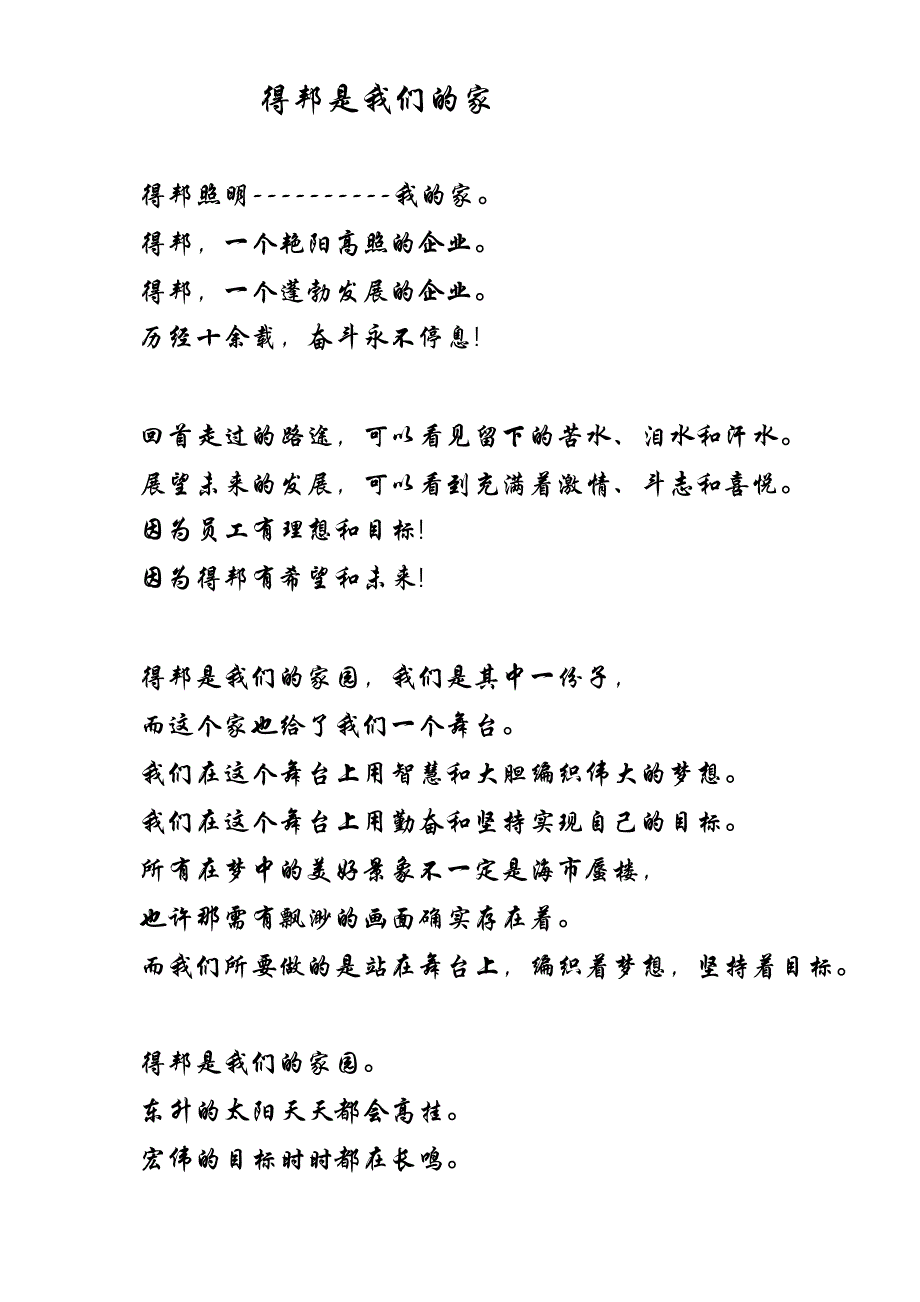 得邦是我们的家
得邦照明----------我的家。
得邦，一个艳阳高照的企业。
得邦，一个蓬勃发展的企业。
历经十余载，奋斗永不停息！
回首走过的路途，可以看见留下的苦水、泪水和汗水。
展望未来的发展，可以看到充满着激情、斗志和喜悦。
因为员工有理想和目标！
因为得邦有希望和未来！
得邦是我们的家园，我们是其中一份子，
而这个家也给了我们一个舞台。
我们在这个舞台上用智慧和大胆编织伟大的梦想。
我们在这个舞台上用勤奋和坚持实现自己的目标。
所有在梦中的美好景象不一定是海市蜃楼，
也许那需有飘渺的画面确实存在着。
而我们所要做的是站在舞台上，编织着梦想，坚持着目标。
得邦是我们的家园。
东升的太阳天天都会高挂。
宏伟的目标时时都在长鸣。